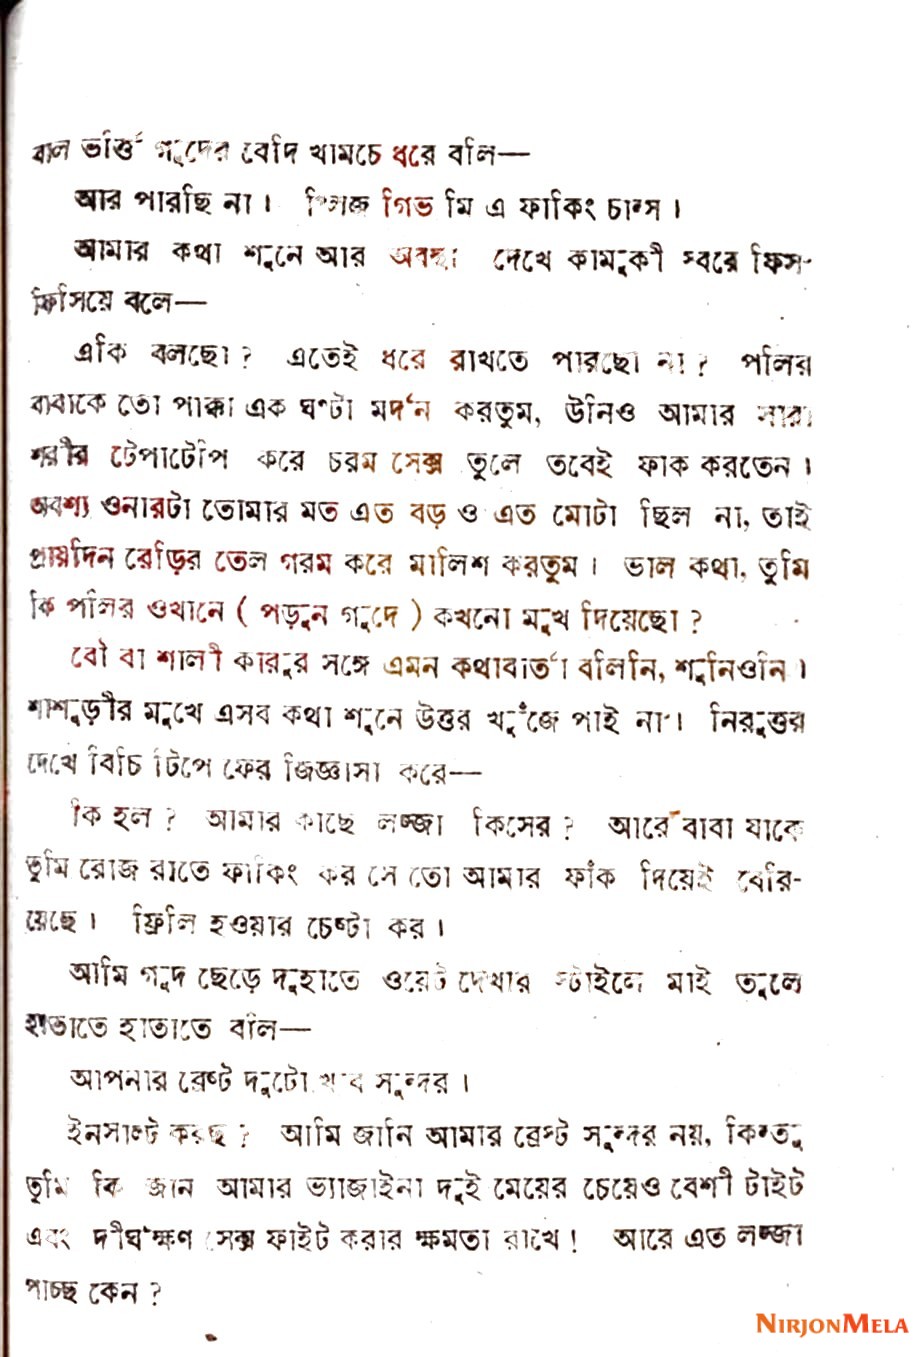 বাল ভর্তি গুদের বেদি খামচে ধরে বলি—
আর পারছি না। প্লিজ গিভ মি এ ফাকিং চান্স।
আমার কথা শুনে আর অবস্থা দেখে কামুকী স্বরে ফিস-
ফিসিয়ে বলে—
একি বলছো? এতেই ধরে রাখতে পারছো না? পলির
বাবাকে তো পাক্কা এক ঘণ্টা মর্দন করতুম, উনিও আমার সারা
শরীর টেপাটেপি করে চরম সেক্স তুলে তবেই ফাক করতেন।
অবশ্য ওনারটা তোমার মত এত বড় ও এত মোটা ছিল না, তাই
প্রায়দিন রেড়ির তেল গরম করে মালিশ করতুম। ভাল কথা, তুমি
কি পলির ওখানে ( পড়ুন গুদে ) কখনো মুখ দিয়েছো?
বৌ বা শালী কারুর সঙ্গে এমন কথাবার্তা বলিনি, শুনিওনি।
শাশুড়ীর মুখে এসব কথা শুনে উত্তর খুঁজে পাই না। নিরুত্তর
দেখে বিচি টিপে ফের জিজ্ঞাসা করে—
কি হল? আমার কাছে লজ্জা কিসের? আরে বাবা যাকে
তুমি রোজ রাতে ফাকিং কর সে তো আমার ফাঁক দিয়েই বেরি-
য়েছে। ফ্রিলি হওয়ার চেষ্টা কর।
আমি গুদ ছেড়ে দুহাতে ওয়েট দেখার স্টাইলে মাই তুলে
হাতাতে হাতাতে বলি—
আপনার ব্রেষ্ট দুটো খুব সুন্দর।
ইনসাল্ট করছ? আমি জানি আমার ব্রেস্ট সুন্দর নয়, কিন্তু
তুমি কি জান আমার ভ্যাজাইনা দুই মেয়ের চেয়েও বেশী টাইট
এবং দীর্ঘক্ষণ সেক্স ফাইট করার ক্ষমতা রাখে! আরে এত লজ্জা
পাচ্ছ কেন?
NIRJONMELA